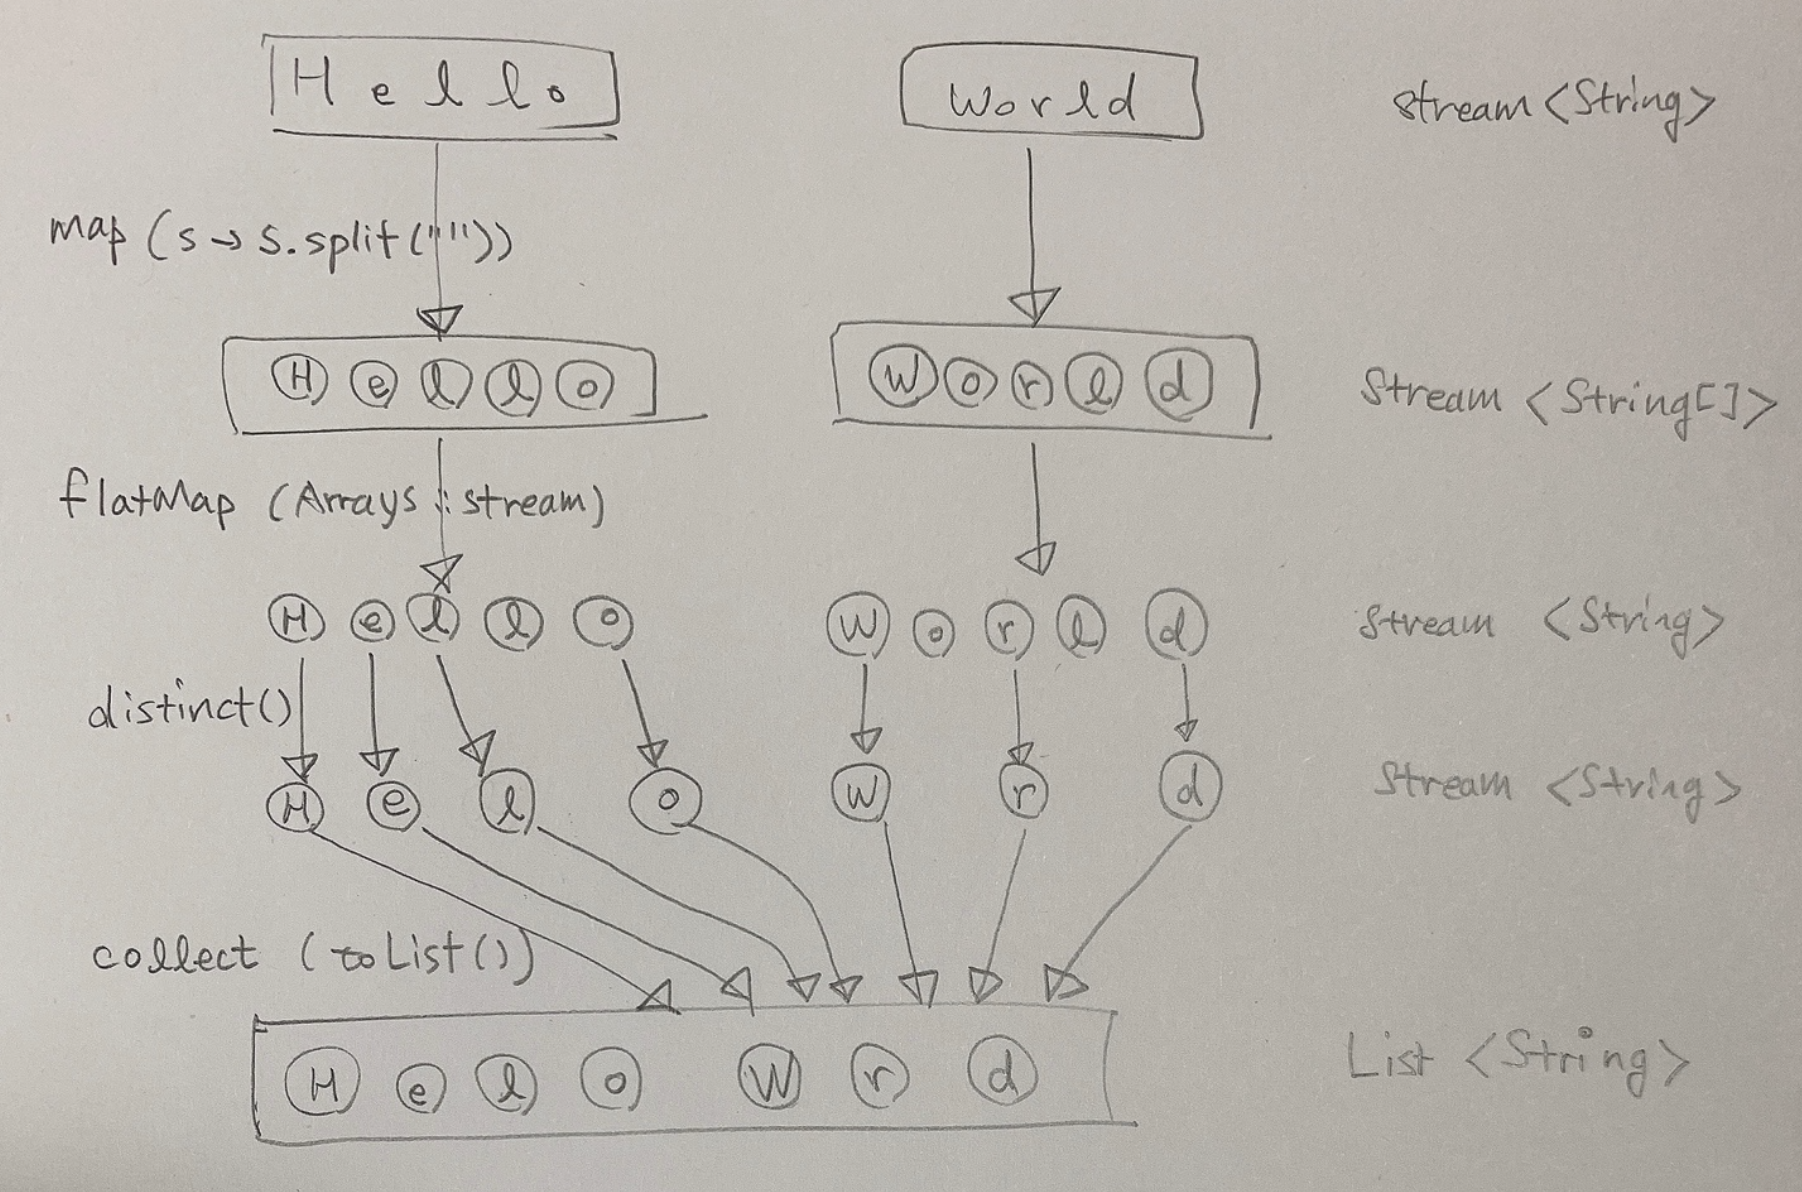 Hello World Stream<String>
map (s→s.split(""))
H e l l o W o r l d Stream <String[]>
flatMap (Arrays::stream)
H e l l o W o r l d Stream <String>
distinct()
H e l o W r d Stream <String>
collect (toList())
H e l o W r d List <String>